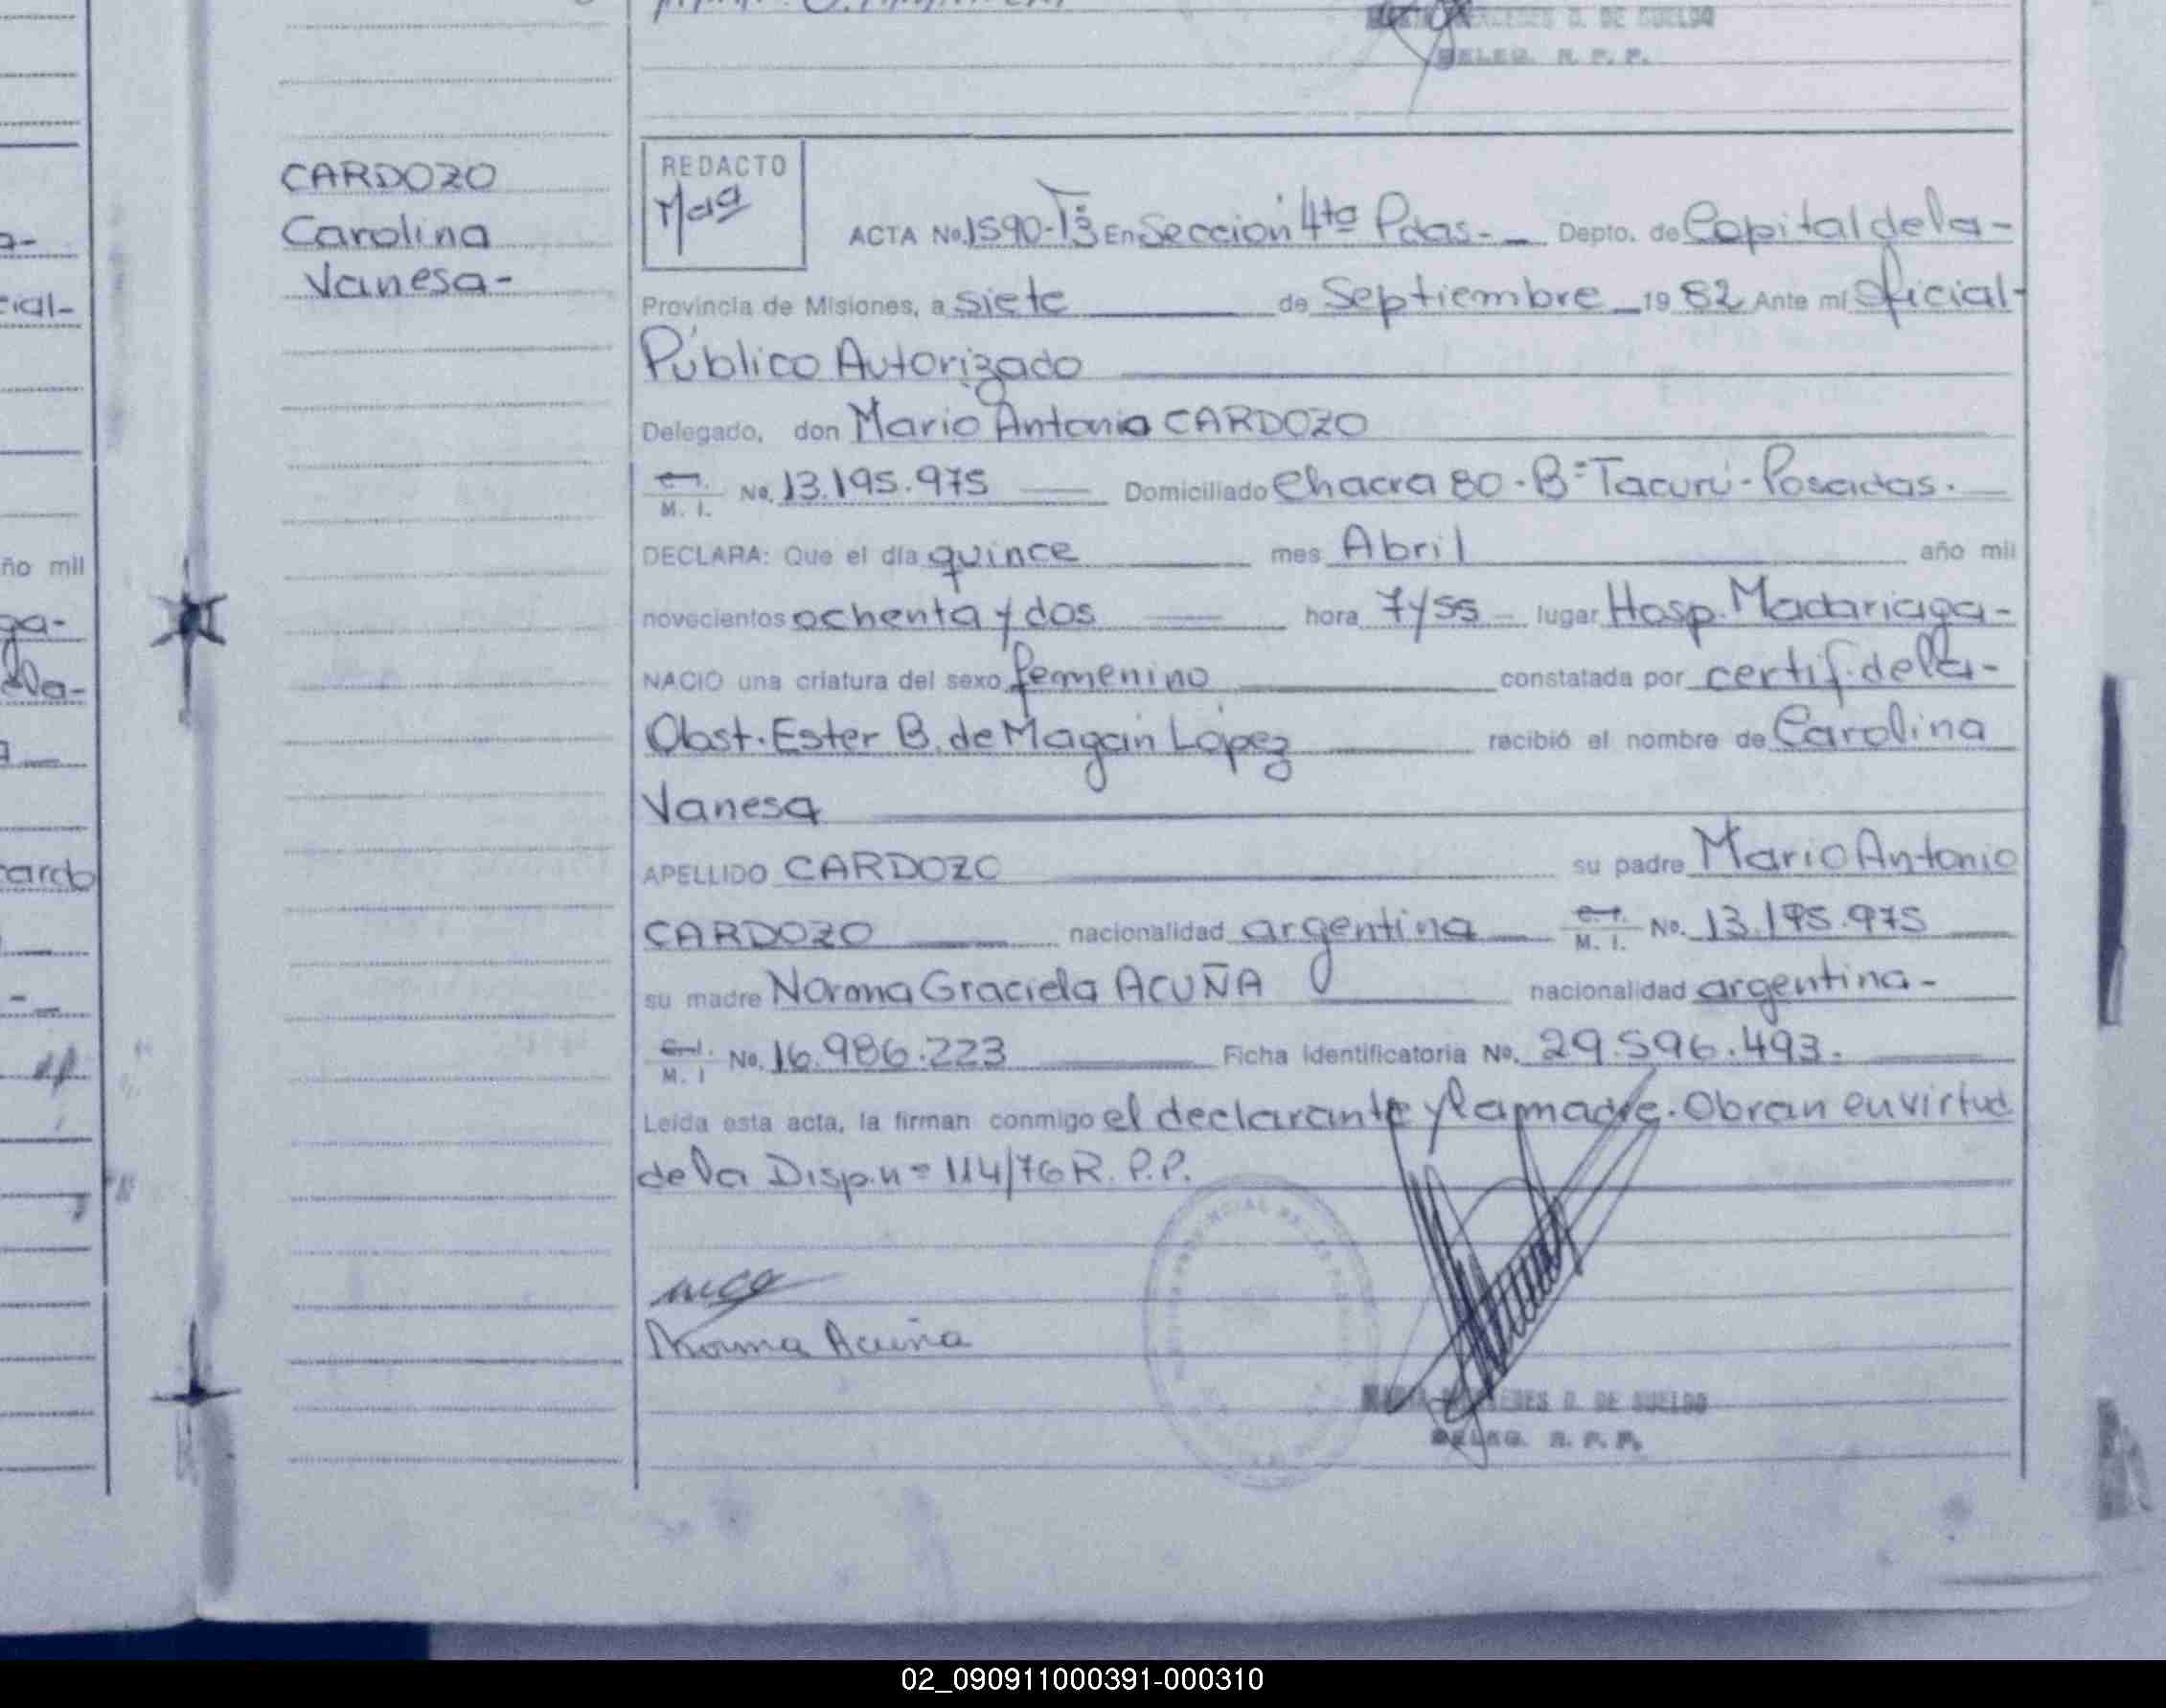 MERCEDES D. DE SUELDO
DELEG. R. P. P.
CARDOZO
Carolina
Vanesa-
REDACTO
ACTA No. 1590-Tº3 En Sección 4ta Pdas.- Depto. de Capital de la-
Provincia de Misiones, a siete de Septiembre 1982 Ante mí Oficial-
Público Autorizado
Delegado, don Mario Antonio CARDOZO
C.I. M. I. No. 13.195.975 Domiciliado Chacra 80-Bº Tacurú-Posadas.
DECLARA: Que el día quince mes Abril año mil
novecientos ochenta y dos hora 7y55 lugar Hosp. Madariaga-
NACIO una criatura del sexo femenino constatada por certif. de la-
Obst. Ester B. de Magán López recibió el nombre de Carolina
Vanesa
APELLIDO CARDOZO su padre Mario Antonio
CARDOZO nacionalidad argentina C.I. M. I. No. 13.195.975
su madre Norma Graciela ACUÑA nacionalidad argentina-
C.I. M. I No. 16.986.223 Ficha Identificatoria No. 29.596.493.
Leída esta acta, la firman conmigo el declarante y la madre. Obran en virtud
de la Disp. nº 114/76 R. P. P.
Norma Acuña
D. DE SUELDO
DELEG. R. P. P.
ial-
ño mil
ga-
ela-
cardo
02_090911000391-000310